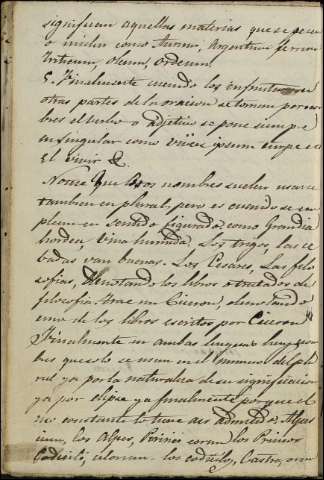 significan aquellas materias que se pesan
o miden como Aurum, Argentum ferrum
Triticum, Oleum, Ordeum.
5. Finalmente cuando los infinitivos u
otras partes de la oracion se toman por nom
bres el verbo o adjetivo se pone siempre
en singular como
El vivir &.
Notese que estos nombres suelen usarse
tambien en plural, pero es cuando se em
plean en sentido figurado: como Grandia
hordea, Vina Los trigos, las ce
badas van buenas. Los Cesares, Las filo
sofias, denotando los libros o tratados de
filosofia. trae un Ciceron, denotando
uno de los libros escritos por Ciceron
Finalmente en ambas lenguas hay nom
bres que solo se usan en el numero del plu
ral ya por la naturaleza de su significacion
ya por elipse ya finalmente por que el
uso constante lo tiene asi admitido: Alpes
ium, los Alpes, los
los Castra, orum